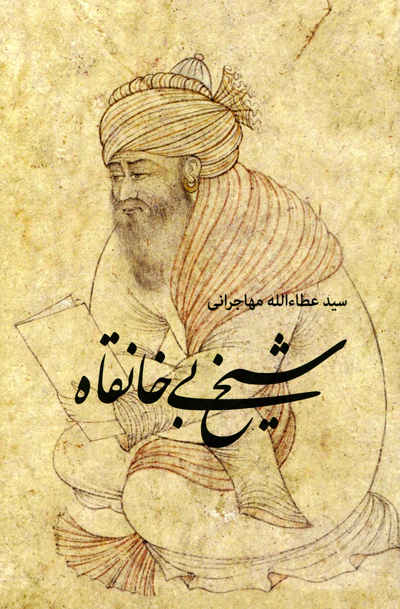 سید عطاءالله مهاجرانی
شیخ بی‌خانقاه